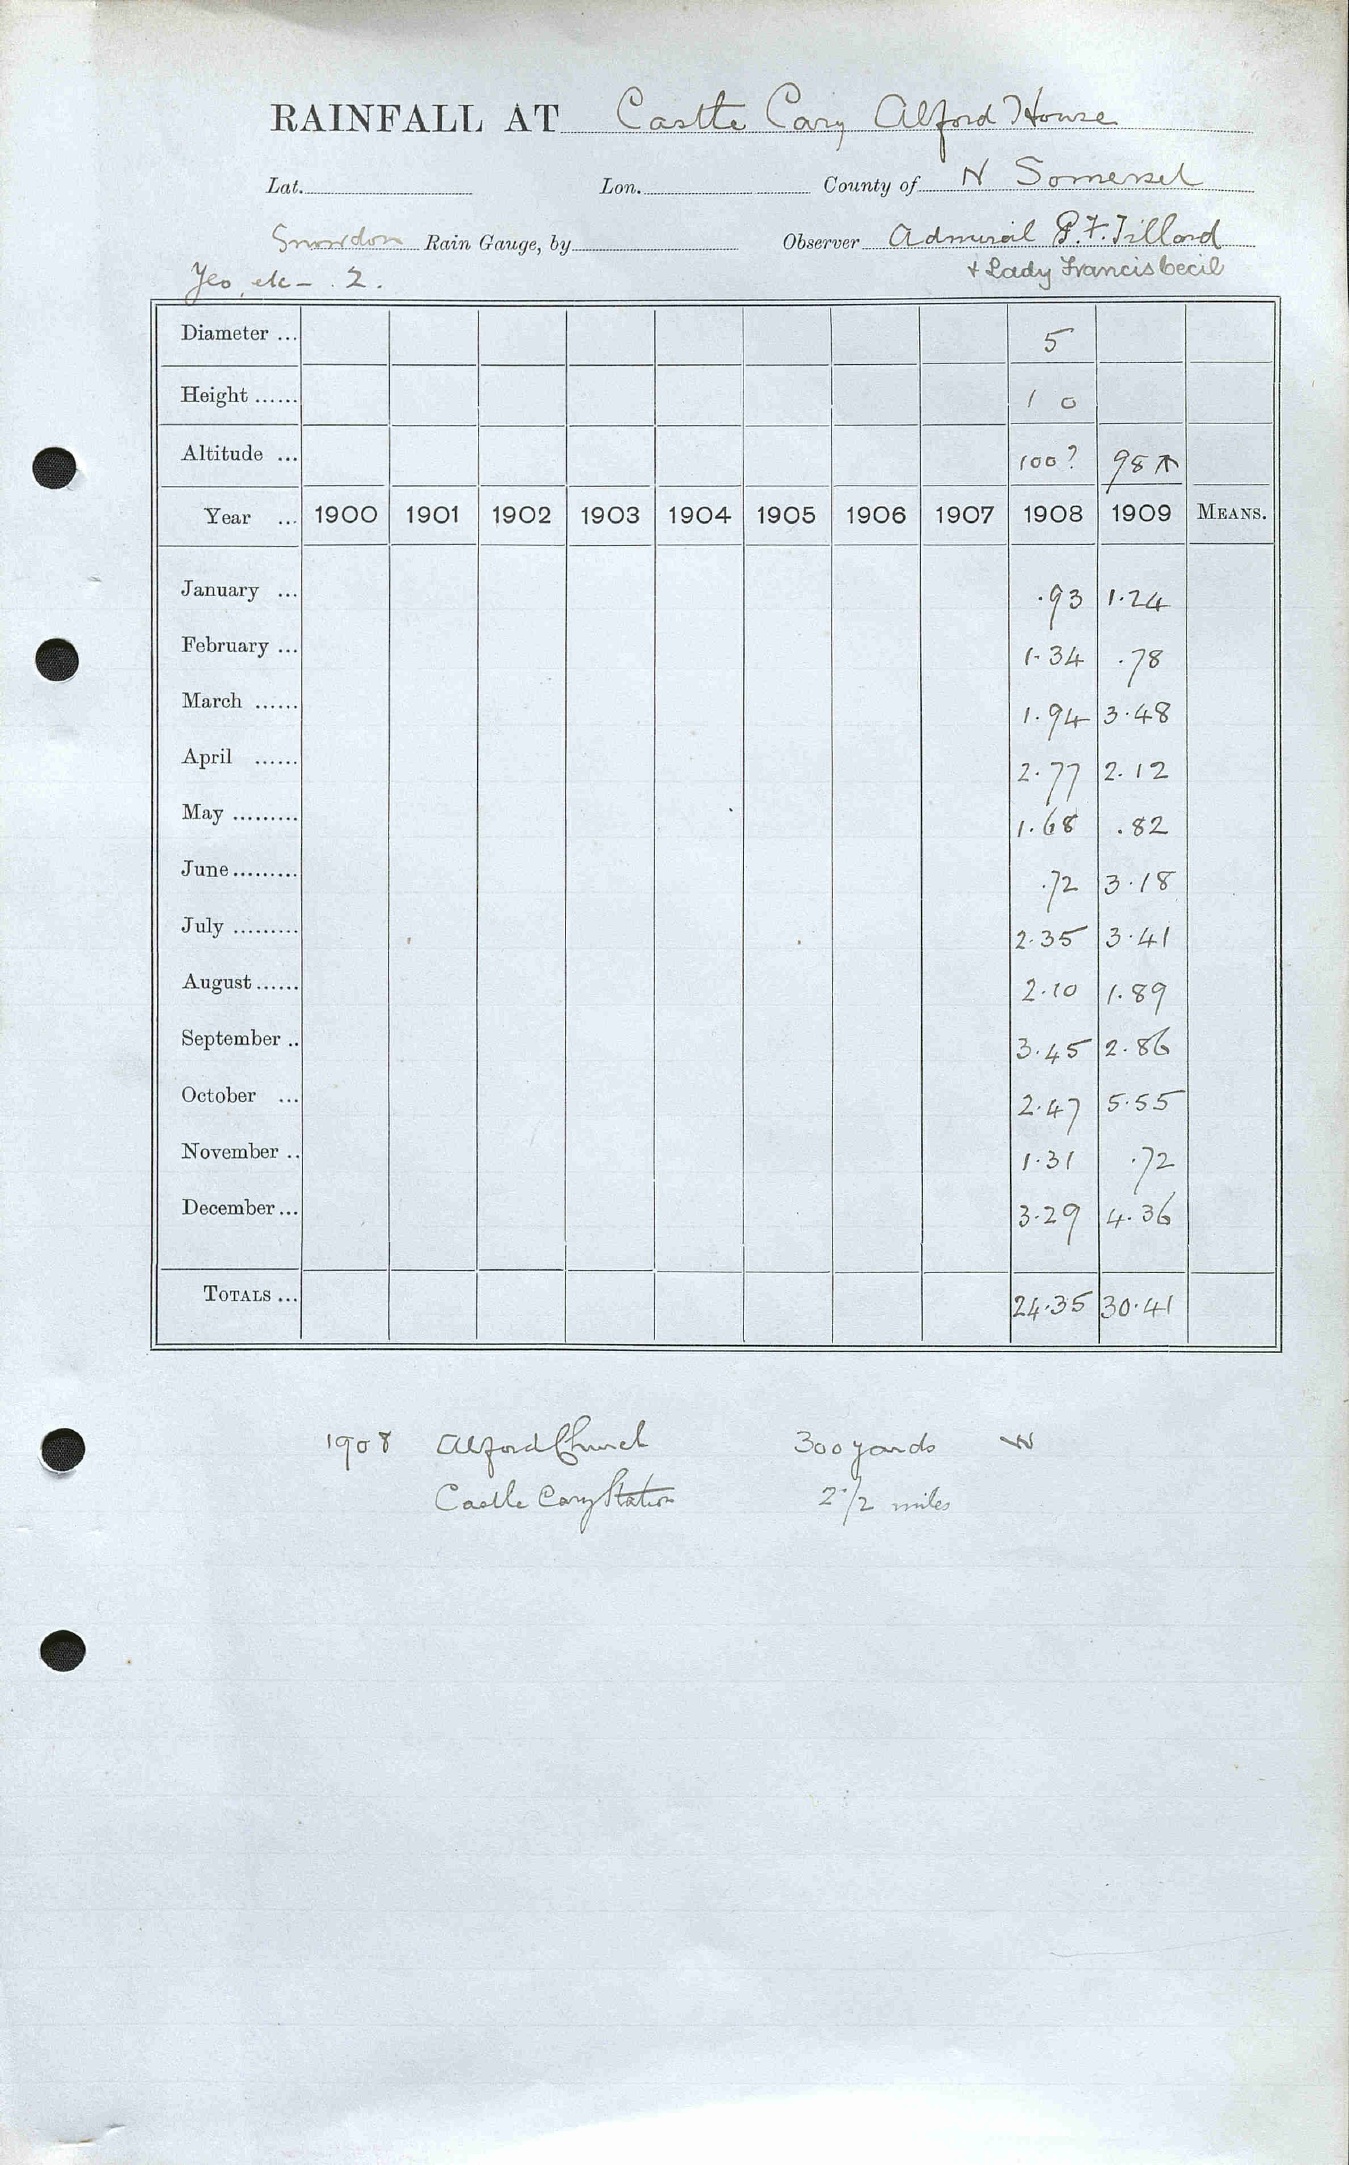 RAINFALL AT Castle Cary Alford House
Lat. Lon. County of N Somerset
Snowdon Rain Gauge, by Observer Admiral P.F. Tillard
Yeo, etc - . 2. + Lady Francis Cecil
Diameter ... 5
Height ...... 1 0
Altitude ... 100? 98
Year ... 1900 1901 1902 1903 1904 1905 1906 1907 1908 1909 MEANS.
January ... .93 1.24
February ... 1.34 .78
March ...... 1.94 3.48
April ...... 2.77 2.12
May ......... 1.68 .82
June ......... .72 3.18
July ......... 2.35 3.41
August ...... 2.10 1.89
September .. 3.45 2.86
October ... 2.47 5.55
November .. 1.31 .72
December ... 3.29 4.36
TOTALS ... 24.35 30.41
1908 Alford Church 300 yards W
Castle Cary Station 2 1/2 miles